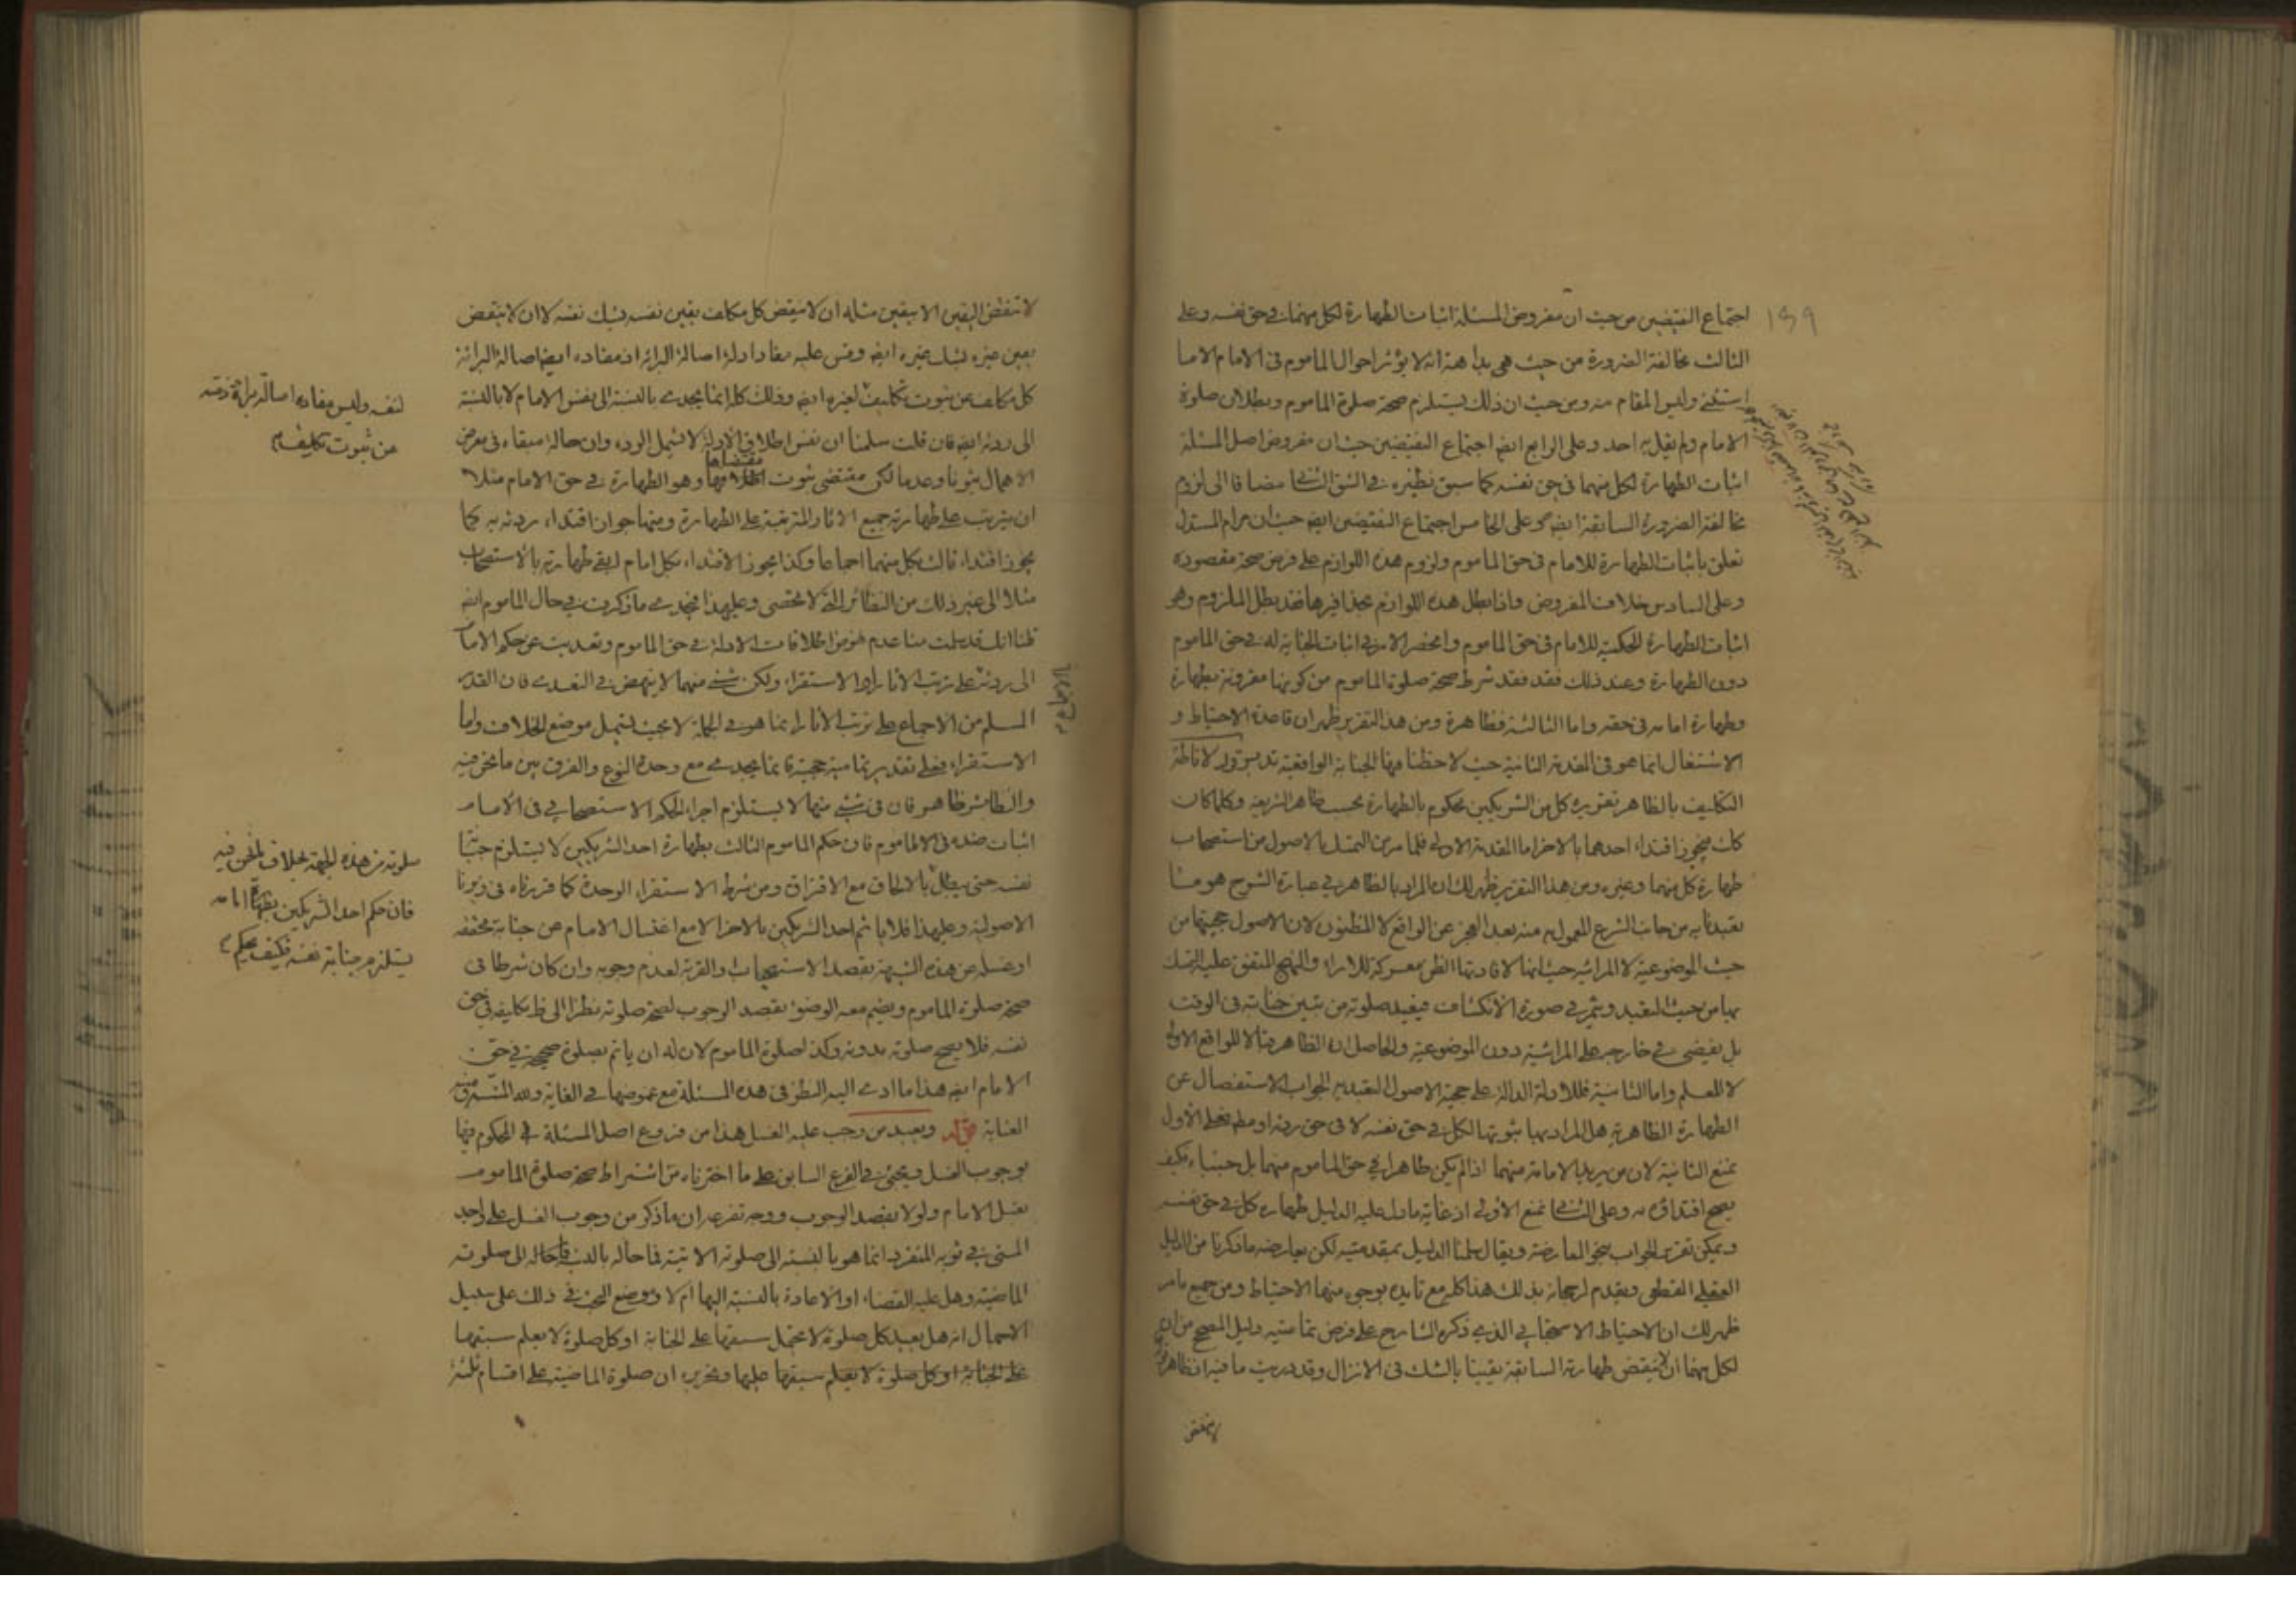 ۱۳۹
اجتماع النقيضين من حيث ان مفروض المسئلة اثبات الطهارة لكل منهما في حق نفسه وعلى
الثالث مخالفة الضرورة من حيث هي بداهة انه لا يؤثر احوال الماموم في الامام الا ما
استثنى وليس المقام منه ومن حيث ان ذلك يستلزم صحة صلوة الماموم وبطلان صلوة
الامام ولم يقل به احد وعلى الرابع ايضا اجتماع النقيضين حيث ان مفروض اصل المسئلة
اثبات الطهارة لكل منهما في حق نفسه كما سبق نظيره في الشق الثاني مضافا الى لزوم
مخالفة الضرورة السابقة ايضا وعلى الخامس اجتماع النقيضين ايضا حيث ان مرام المستدل
تعلق باثبات الطهارة للامام في حق الماموم ولزوم هذه اللوازم على فرض صحة مقصوده
وعلى السادس خلاف المفروض واذا بطل هذه اللوازم بحذافيرها فقد بطل الملزوم وهو
اثبات الطهارة الحكمية للامام في حق الماموم وانحصر الامر في اثبات الجنابة له في حق الماموم
دون الطهارة وعند ذلك فقد فقد شرط صحة صلوة الماموم من كونها مقرونة بطهارة
وطهارة امامه في حقه واما الثالثة فظاهرة ومن هذا التقرير ظهر ان قاعدة الاحتياط و
الاشتغال انما هو في المقدمة الثانية حيث لاحظنا فيها الجنابة الواقعية لاناطة
التكليف بالظاهر تقريره كل من الشريكين محكوم بالطهارة بحسب ظاهر الشريعة وكلما كان
كك فيجوز اقتداء احدهما بالاخر اما المقدمة الاولى فلما مر من التمسك بالاصول من استصحاب
طهارة كل منهما وغيره ومن هذا التقرير ظهر لك ان المراد بالظاهر في عبارة الشرح هو ما
تعبدنا به من جانب الشرع المعمول به منه بعد العجز عن الواقع لا المظنون لان الاصول حجيتها من
حيث الموضوعية لا المراتية حيث انها لافادتها الظن معركة للاراء والنهج المتفق عليه التمسك
بها من حيث التعبد ويثمر في صورة الانكشاف فيعيد صلوته من تبين جنابته في الوقت
بل يقضي في خارجه على المراتية دون الموضوعية والحاصل ان الظاهر هنا لا للواقع الاولى
لا للعمل واما الثانية فللادلة الدالة على حجية الاصول التعبدية الجواب الاستفصال عن
الطهارة الظاهرية هل المراد بها ثبوتها لكل في حق نفسه لا في حق ردئه او مطلقا فعلى الاول
نمنع الثانية لان من يريد الامامة منهما اذا لم يكن طاهرا في حق الماموم منهما بل جنبا فكيف
يصح اقتداؤه به وعلى الثاني نمنع الاولى اذ غاية ما دل عليه الدليل طهارة كل في حق نفسه
ويمكن تقرير الجواب بنحو المعارضة ويقال سلمنا الدليل بمقدمتيه لكن يعارضه ما ذكرنا من الدليل
العقلي القطعي ويقدم لرجحانه بذلك هذا كله مع تايده بوجوه منها الاحتياط ومن جميع ما مر
ظهر لك ان الاحتياط الاستحبابي الذي ذكره الشارح على فرض تمامية دليل المصحح من ان
لكل منهما ان لا ينقض طهارته السابقة يقينا بالشك في الانزال وقد دريت ما فيه اذ ظاهر
لا تنقض
لا تنقض اليقين الا بيقين مثله ان لا ينقض كل مكلف يقين نفسه بشك نفسه لا ان لا ينقض
يقين غيره بشك غيره ايضا وقس عليه مفاد ادلة اصالة البرائة اذ مفاده ايضا اصالة البرائة
كل مكلف عن ثبوت تكليف لغيره ايضا وذلك كله انما يجدي بالنسبة الى نفس الامام لا بالنسبة
الى ردئه ايضا فان قلت سلمنا ان نفس اطلاق الادلة لا تشمل الردء وان حاله مبقاة في معرض
الاهمال ثبوتا وعدما لكن مقتضى ثبوت مقتضاها وهو الطهارة في حق الامام مثلا
ان يترتب على طهارته جميع الاثار المترتبة على الطهارة ومنها جواز اقتداء ردئه به كما
يجوز اقتداء ثالث بكل منهما اجماعا وكذا يجوز الاقتداء بكل امام لبقى طهارته بالاستصحاب
مثلا الى غير ذلك من النظائر التي لا تحصى وعليهذا فيجدي ما ذكرت في حال الماموم ايضا
قلنا انك قد سلمت منا عدم نهوض اطلاقات الادلة في حق الماموم وتعديت عن حكم الامام
الى ردئه على ترتب الاثار او الاستقراء ولكن شيئ منهما لا ينهض في التعدي فان القدر
المسلم من الاجماع على ترتب الاثار انما هو في الجملة لا بحيث يشمل موضع الخلاف واما
الاستقراء فعلى تقدير تمامية حجيته فانما يجدي مع وحدة النوع والفرق بين ما نحن فيه
والنظائر ظاهر فان في شيئ منها لا يستلزم اجراء الحكم الاستصحابي في الامام
اثبات ضده في الماموم فان حكم الماموم الثالث بطهارة احد الشريكين لا يستلزم جنابة
نفسه حتى يقال بالالحاق مع الافتراق ومن شرط الاستقراء الوحدة كما قررناه في زبرنا
الاصولية وعليهذا فلا ياتم احد الشريكين بالاخر الا مع اغتسال الامام عن جنابة محققة
او غسله عن هذه الشبهة بقصد الاستحباب والقربة لعدم وجوبه وان كان شرطا في
صحة صلوة الماموم ويضم معه الوضوء بقصد الوجوب لصحة صلوته نظرا الى ظ تكليفه في حق
نفسه فلا يصح صلوته بدونه وكذا صلوة الماموم لان له ان ياتم بصلوة صحيحة في حق
الامام ايضا هذا ما ادى اليه النظر في هذه المسئلة مع غموضها في الغاية ولله المنة
العناية قوله ويعيد من وجب عليه الغسل هذا من فروع اصل المسئلة في المحكوم فيها
بوجوب الغسل ويجئ في الفرع السابق على ما اخترناه من اشتراط صحة صلوة الماموم
بغسل الامام ولو لا بقصد الوجوب ووجه تفرعه ان ما ذكر من وجوب الغسل على واجد
المني في ثوبه المنفرد انما هو بالنسبة الى صلوته الاتية فما حاله بالنسبة الى صلوته
الماضية وهل عليه القضاء او الاعادة بالنسبة اليها ام لا وموضع البحث في ذلك على سبيل
الاجمال انه هل يعيد كل صلوة لا يحتمل سبقها على الجنابة او كل صلوة لا يعلم سبقها
على الجنابة او كل صلوة لا يعلم سبقها عليها وتحريره ان صلوة الماضية على اقسام ثلثة
لنفسه وليس مفاده اصالة برائة ذمته
عن ثبوت تكليف
صلوته من هذه الجهة بخلاف ما نحن فيه
فان حكم احد الشريكين بطهارة امامه
يستلزم جنابة نفسه فكيف يحكم